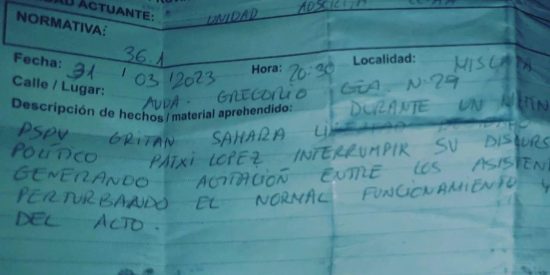 AD ACTUANTE: UNIDAD ADSCRITA
NORMATIVA: 36.1
Fecha: 31 / 03 / 2023 Hora: 20:30 Localidad: MISLATA
Calle / Lugar: AVDA. GREGORIO GEA. Nº 29
Descripción de hechos / material aprehendido: DURANTE UN MITIN
PSPV GRITAN SAHARA
POLITICO PATXI LOPEZ INTERRUMPIR SU DISCURSO
GENERANDO AGITACIÓN ENTRE LOS ASISTEN
PERTURBANDO EL NORMAL FUNCIONAMIENTO Y
DEL ACTO.